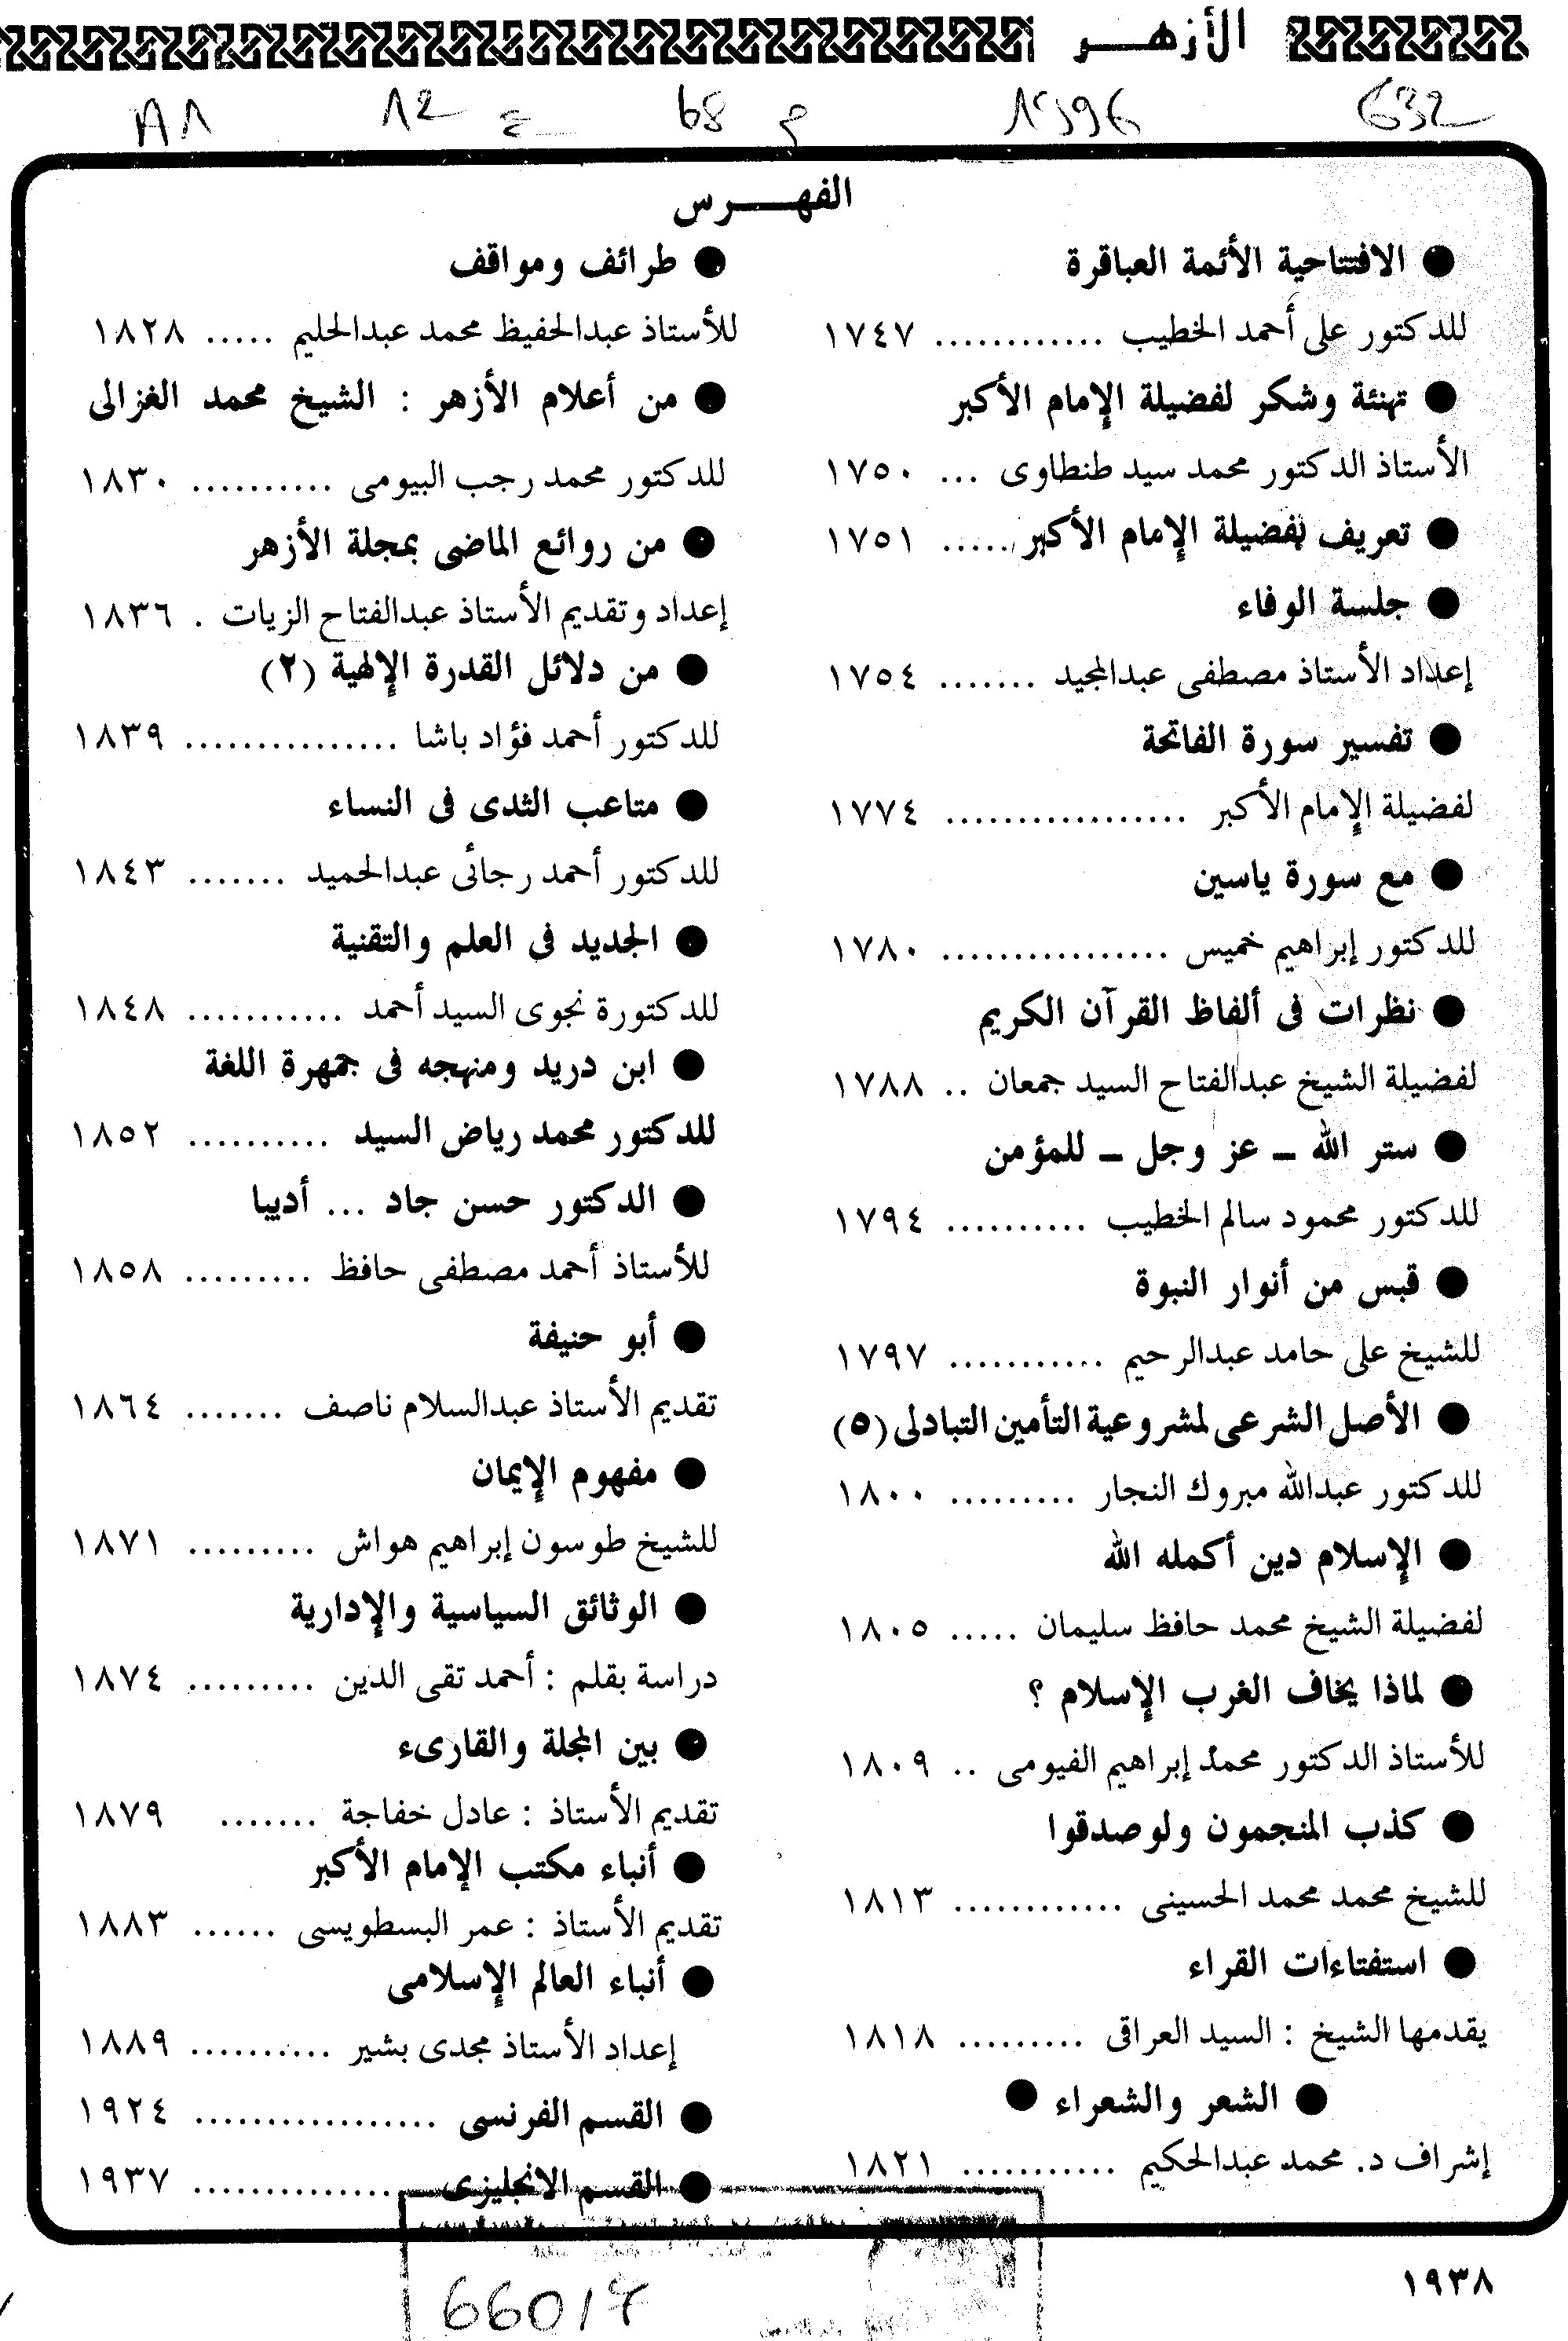 الأزهـــر
632
1996
م
68
ع
12
الفهـــرس
● الافتتاحية الأئمة العباقرة
للدكتور على أحمد الخطيب ............ ١٧٤٧
● تهنئة وشكر لفضيلة الإمام الأكبر
الأستاذ الدكتور محمد سيد طنطاوى ... ١٧٥٠
● تعريف بفضيلة الإمام الأكبر ..... ١٧٥١
● جلسة الوفاء
إعداد الأستاذ مصطفى عبدالمجيد ....... ١٧٥٤
● تفسير سورة الفاتحة
لفضيلة الإمام الأكبر ................. ١٧٧٤
● مع سورة ياسين
للدكتور إبراهيم خميس ................ ١٧٨٠
● نظرات فى ألفاظ القرآن الكريم
لفضيلة الشيخ عبدالفتاح السيد جمعان .. ١٧٨٨
● ستر الله ـ عز وجل ـ للمؤمن
للدكتور محمود سالم الخطيب .......... ١٧٩٤
● قبس من أنوار النبوة
للشيخ على حامد عبدالرحيم ........... ١٧٩٧
● الأصل الشرعى لمشروعية التأمين التبادلى (٥)
للدكتور عبدالله مبروك النجار ......... ١٨٠٠
● الإسلام دين أكمله الله
لفضيلة الشيخ محمد حافظ سليمان ..... ١٨٠٥
● لماذا يخاف الغرب الإسلام ؟
للأستاذ الدكتور محمد إبراهيم الفيومى .. ١٨٠٩
● كذب المنجمون ولوصدقوا
للشيخ محمد محمد الحسينى ............ ١٨١٣
● استفتاءات القراء
يقدمها الشيخ : السيد العراقى ......... ١٨١٨
● الشعر والشعراء ●
إشراف د. محمد عبدالحكيم ........... ١٨٢١
● طرائف ومواقف
للأستاذ عبدالحفيظ محمد عبدالحليم ..... ١٨٢٨
● من أعلام الأزهر : الشيخ محمد الغزالى
للدكتور محمد رجب البيومى .......... ١٨٣٠
● من روائع الماضى بمجلة الأزهر
إعداد وتقديم الأستاذ عبدالفتاح الزيات . ١٨٣٦
● من دلائل القدرة الإلهية (٢)
للدكتور أحمد فؤاد باشا ............... ١٨٣٩
● متاعب الثدى فى النساء
للدكتور أحمد رجائى عبدالحميد ....... ١٨٤٣
● الجديد فى العلم والتقنية
للدكتورة نجوى السيد أحمد ........... ١٨٤٨
● ابن دريد ومنهجه فى جمهرة اللغة
للدكتور محمد رياض السيد .......... ١٨٥٢
● الدكتور حسن جاد ... أديبا
للأستاذ أحمد مصطفى حافظ ......... ١٨٥٨
● أبو حنيفة
تقديم الأستاذ عبدالسلام ناصف ....... ١٨٦٤
● مفهوم الإيمان
للشيخ طوسون إبراهيم هواش ......... ١٨٧١
● الوثائق السياسية والإدارية
دراسة بقلم : أحمد تقى الدين ......... ١٨٧٤
● بين المجلة والقارىء
تقديم الأستاذ : عادل خفاجة ....... ١٨٧٩
● أنباء مكتب الإمام الأكبر
تقديم الأستاذ : عمر البسطويسى ...... ١٨٨٣
● أنباء العالم الإسلامى
إعداد الأستاذ مجدى بشير .......... ١٨٨٩
● القسم الفرنسى ................. ١٩٢٤
● القسم الانجليزى ................ ١٩٣٧
١٩٣٨
66017